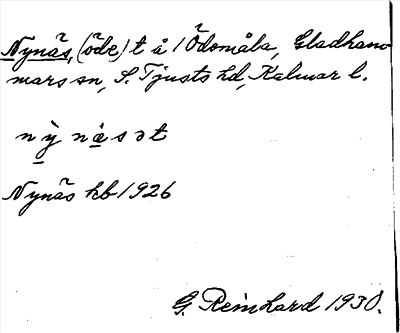 Nynäs, (öde) t å 1 Ödomåla, Gladham
mars sn, S. Tjusts hd, Kalmar l.
nỳ næsət
Nynäs kb 1926
G. Reinhard 1930.